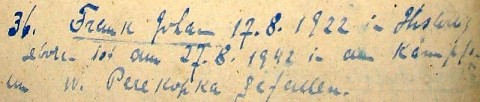 36. Frank Johan 17.8.1922 in
eboren ist am 27.8.1942 in den Kämpfe
um W. Perekopka gefallen.